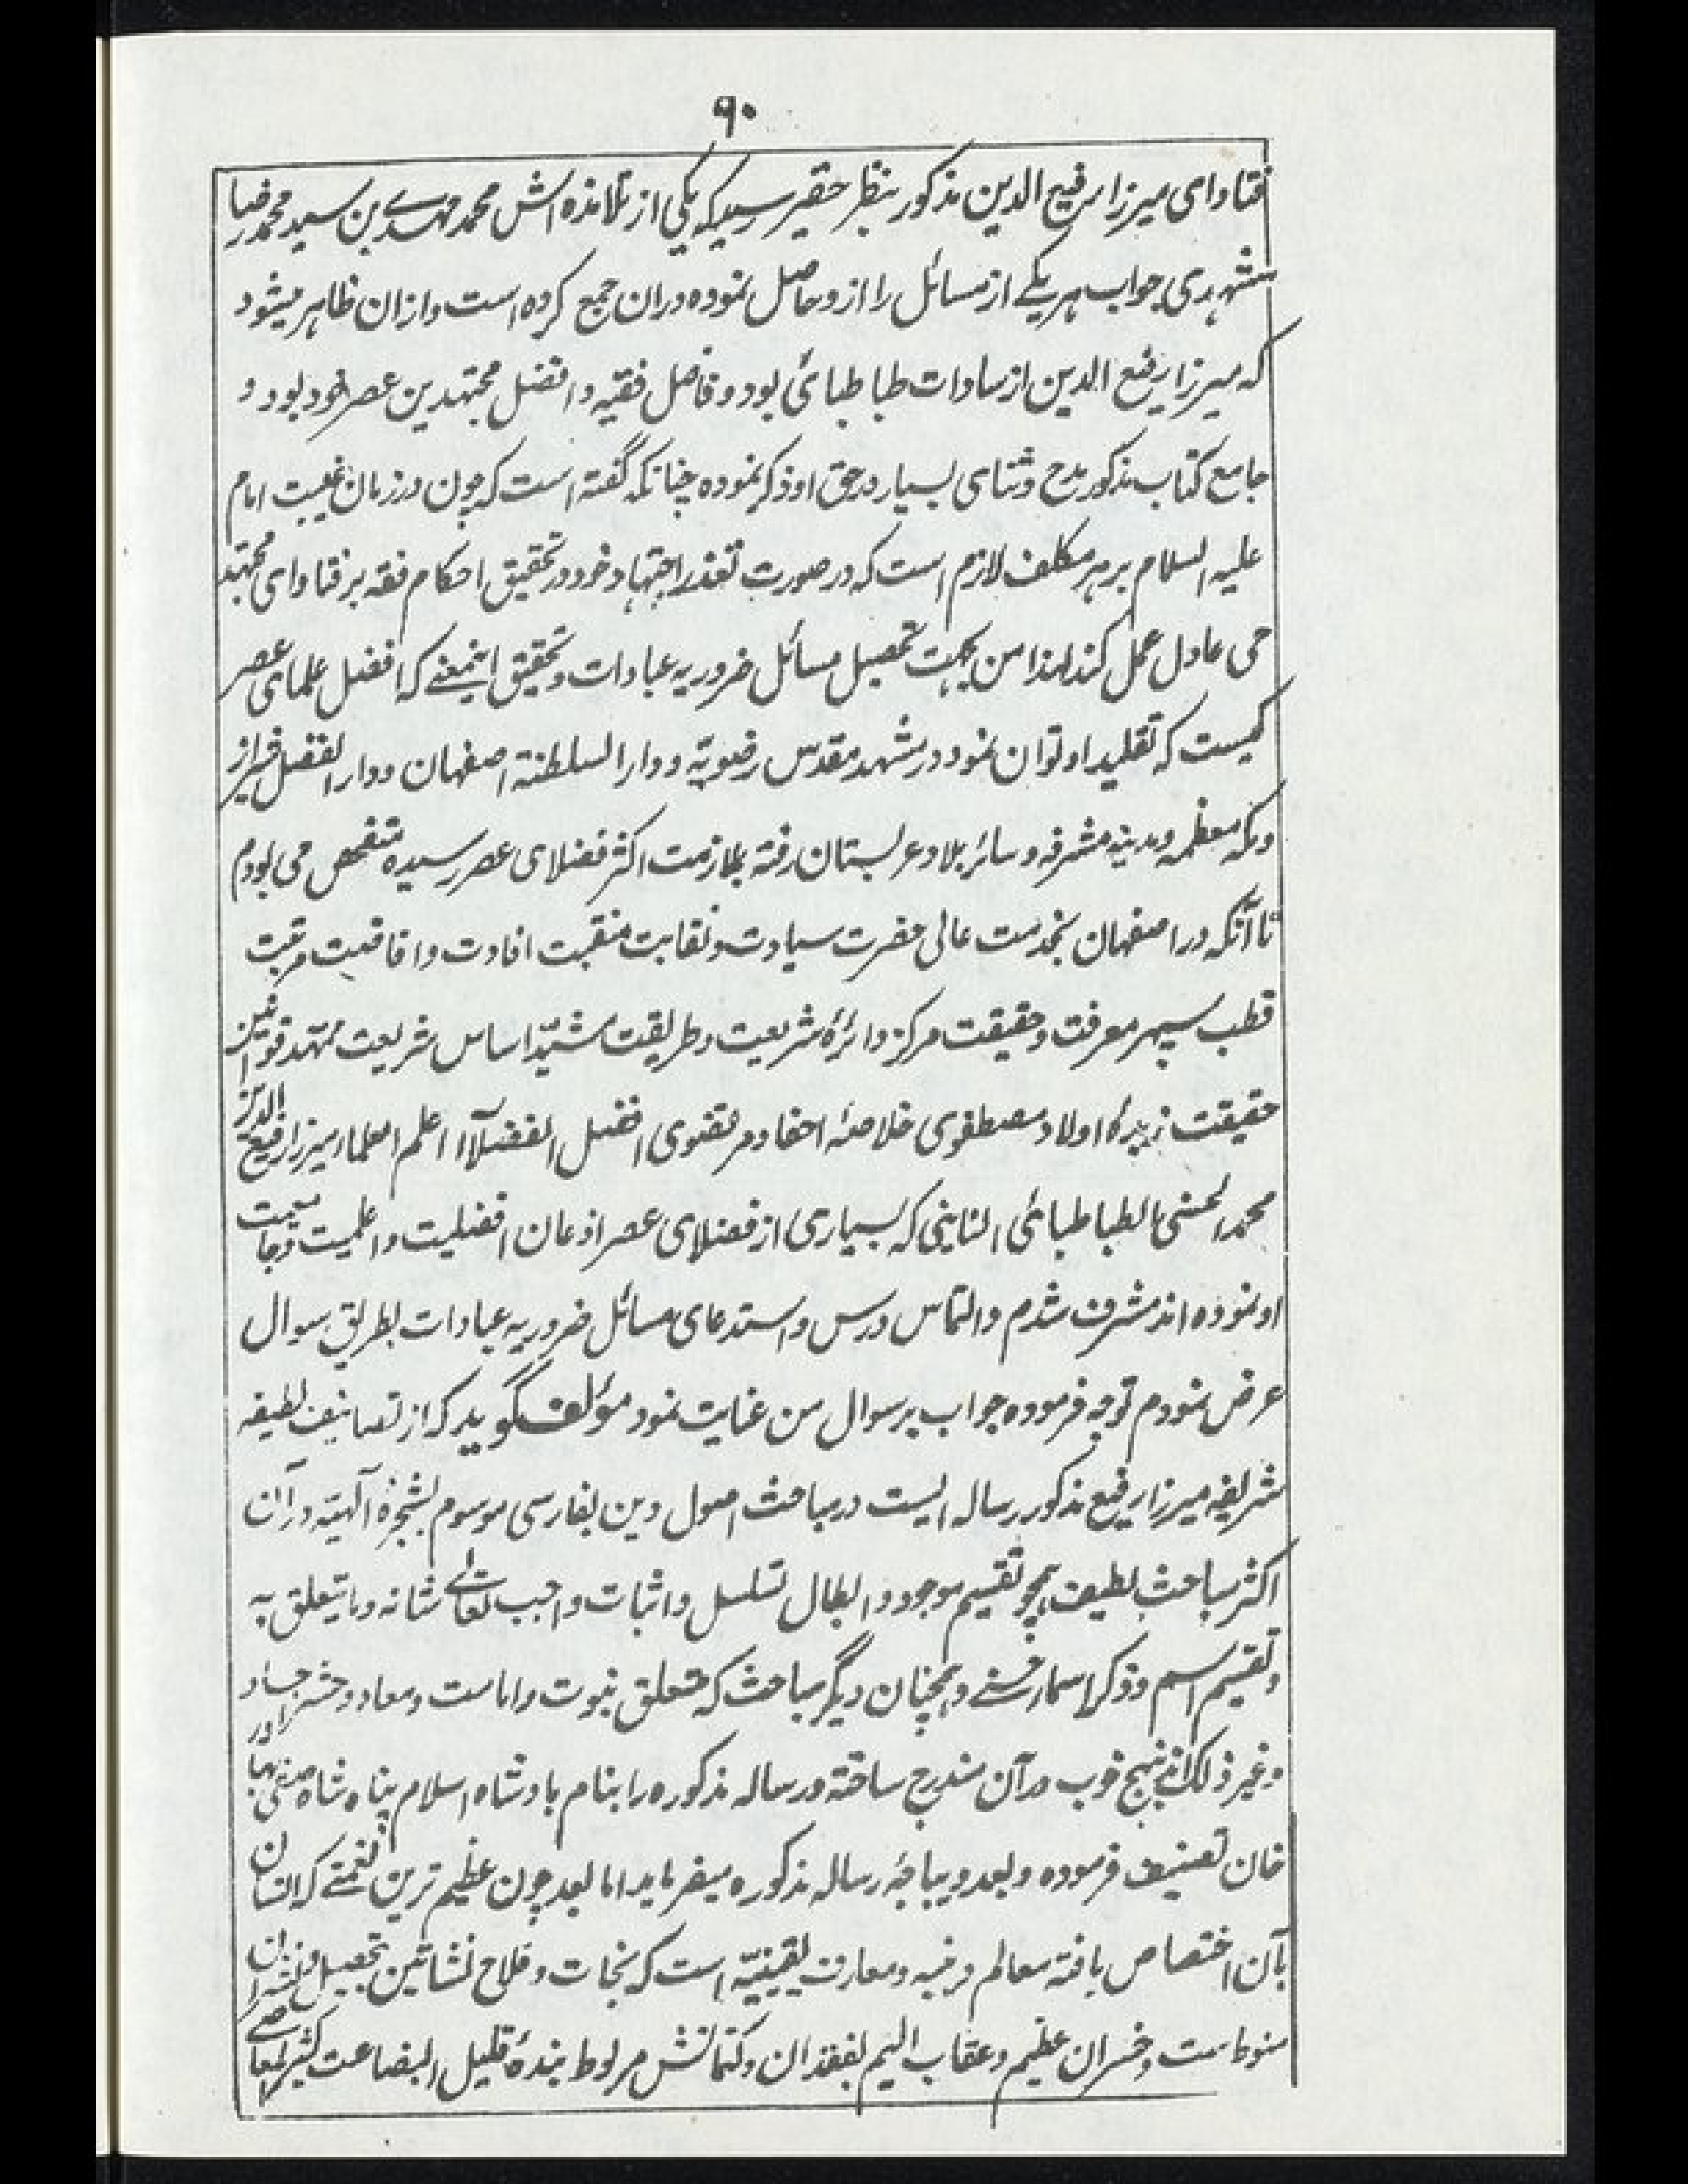 ۹۰
فتاوای میرزا رفیع الدین مذکور بنظر حقیر رسیده که یکی از تلامذه اش محمد مهدی بن سید محمد رضا
مشهدی جواب هر یکی از مسائل را از و حاصل نموده دران جمع کرده است و ازان ظاهر میشود
که میرزا رفیع الدین از سادات طباطبائی بود و فاضل فقیه و افضل مجتهدین عصر خود بود و
جامع کتاب مذکور مدح و ثنای بسیار در حق او ذکر نموده چنانکه گفته است که چون در زمان غیبت امام
علیه السلام بر هر مکلف لازم است که در صورت تعذر اجتهاد خود در تحقیق احکام فقه بر فتاوای مجتهد
حی عادل عمل کند لهذا من بجهت تحصیل مسائل ضروریه عبادات و تحقیق اینمعنے که افضل علمای عصر
کیست که تقلید او توان نمود در مشهد مقدس رضویّه و دار السلطنة اصفهان و دار الفضل شیراز
و مکه معظمه و مدینه مشرفه و سائر بلاد عربستان رفته بملازمت اکثر فضلای عصر رسیده متفحص می بودم
تا آنکه در اصفهان بخدمت عالی حضرت سیادت و نقابت منقبت افادت و افاضت مرتبت
قطب سپهر معرفت و حقیقت مرکز دائرهٔ شریعت و طریقت مشیّد اساس شریعت ممهد قوانین
حقیقت زبدهٔ اولاد مصطفوی خلاصهٔ احفاد مرتضوی افضل الفضلآا اعلم العلما میرزا رفیع الدین
محمد الحسنی الطباطبائی النائینی که بسیاری از فضلای عصر اذعان افضلیت و اعلمیت و جامعیت
او نموده اند مشرف شدم و التماس درس و استدعای مسائل ضروریه عبادات بطریق سوال
عرض نمودم توجه فرموده جواب هر سوال من عنایت نمود مؤلف گوید که از تصانیف لطیفه
شریفه میرزا رفیع مذکور رساله ایست در مباحث اصول دین بفارسی موسوم بشجرهٔ الٓهیّه در آن
اکثر مباحث لطیف همچو تقسیم موجود و ابطال تسلسل و اثبات واجب تعالے شانه و ما یتعلق به
و تقسیم اسم و ذکر اسمار حسنے و همچنان دیگر مباحث که متعلق نبوت و امامت و معاد و حشر اجساد
و غیر ذلک نهج خوب در آن مندرج ساخته و رساله مذکوره را بنام بادشاه اسلام پناه شاه صفی بهادر
خان تصنیف فرموده و بعد دیباجهٔ رساله مذکوره میفرماید اما بعد چون عظیم ترین نعمتے که انسان
بآن اختصاص یافته معالم دینیه و معارف یقینیّه است که نجات و فلاح نشاتین بتحصیل
منوط است و خسران عظیم و عقاب الیم بفقدان و کتمانش مربوط بندهٔ قلیل البضاعت کثیر المعاصے